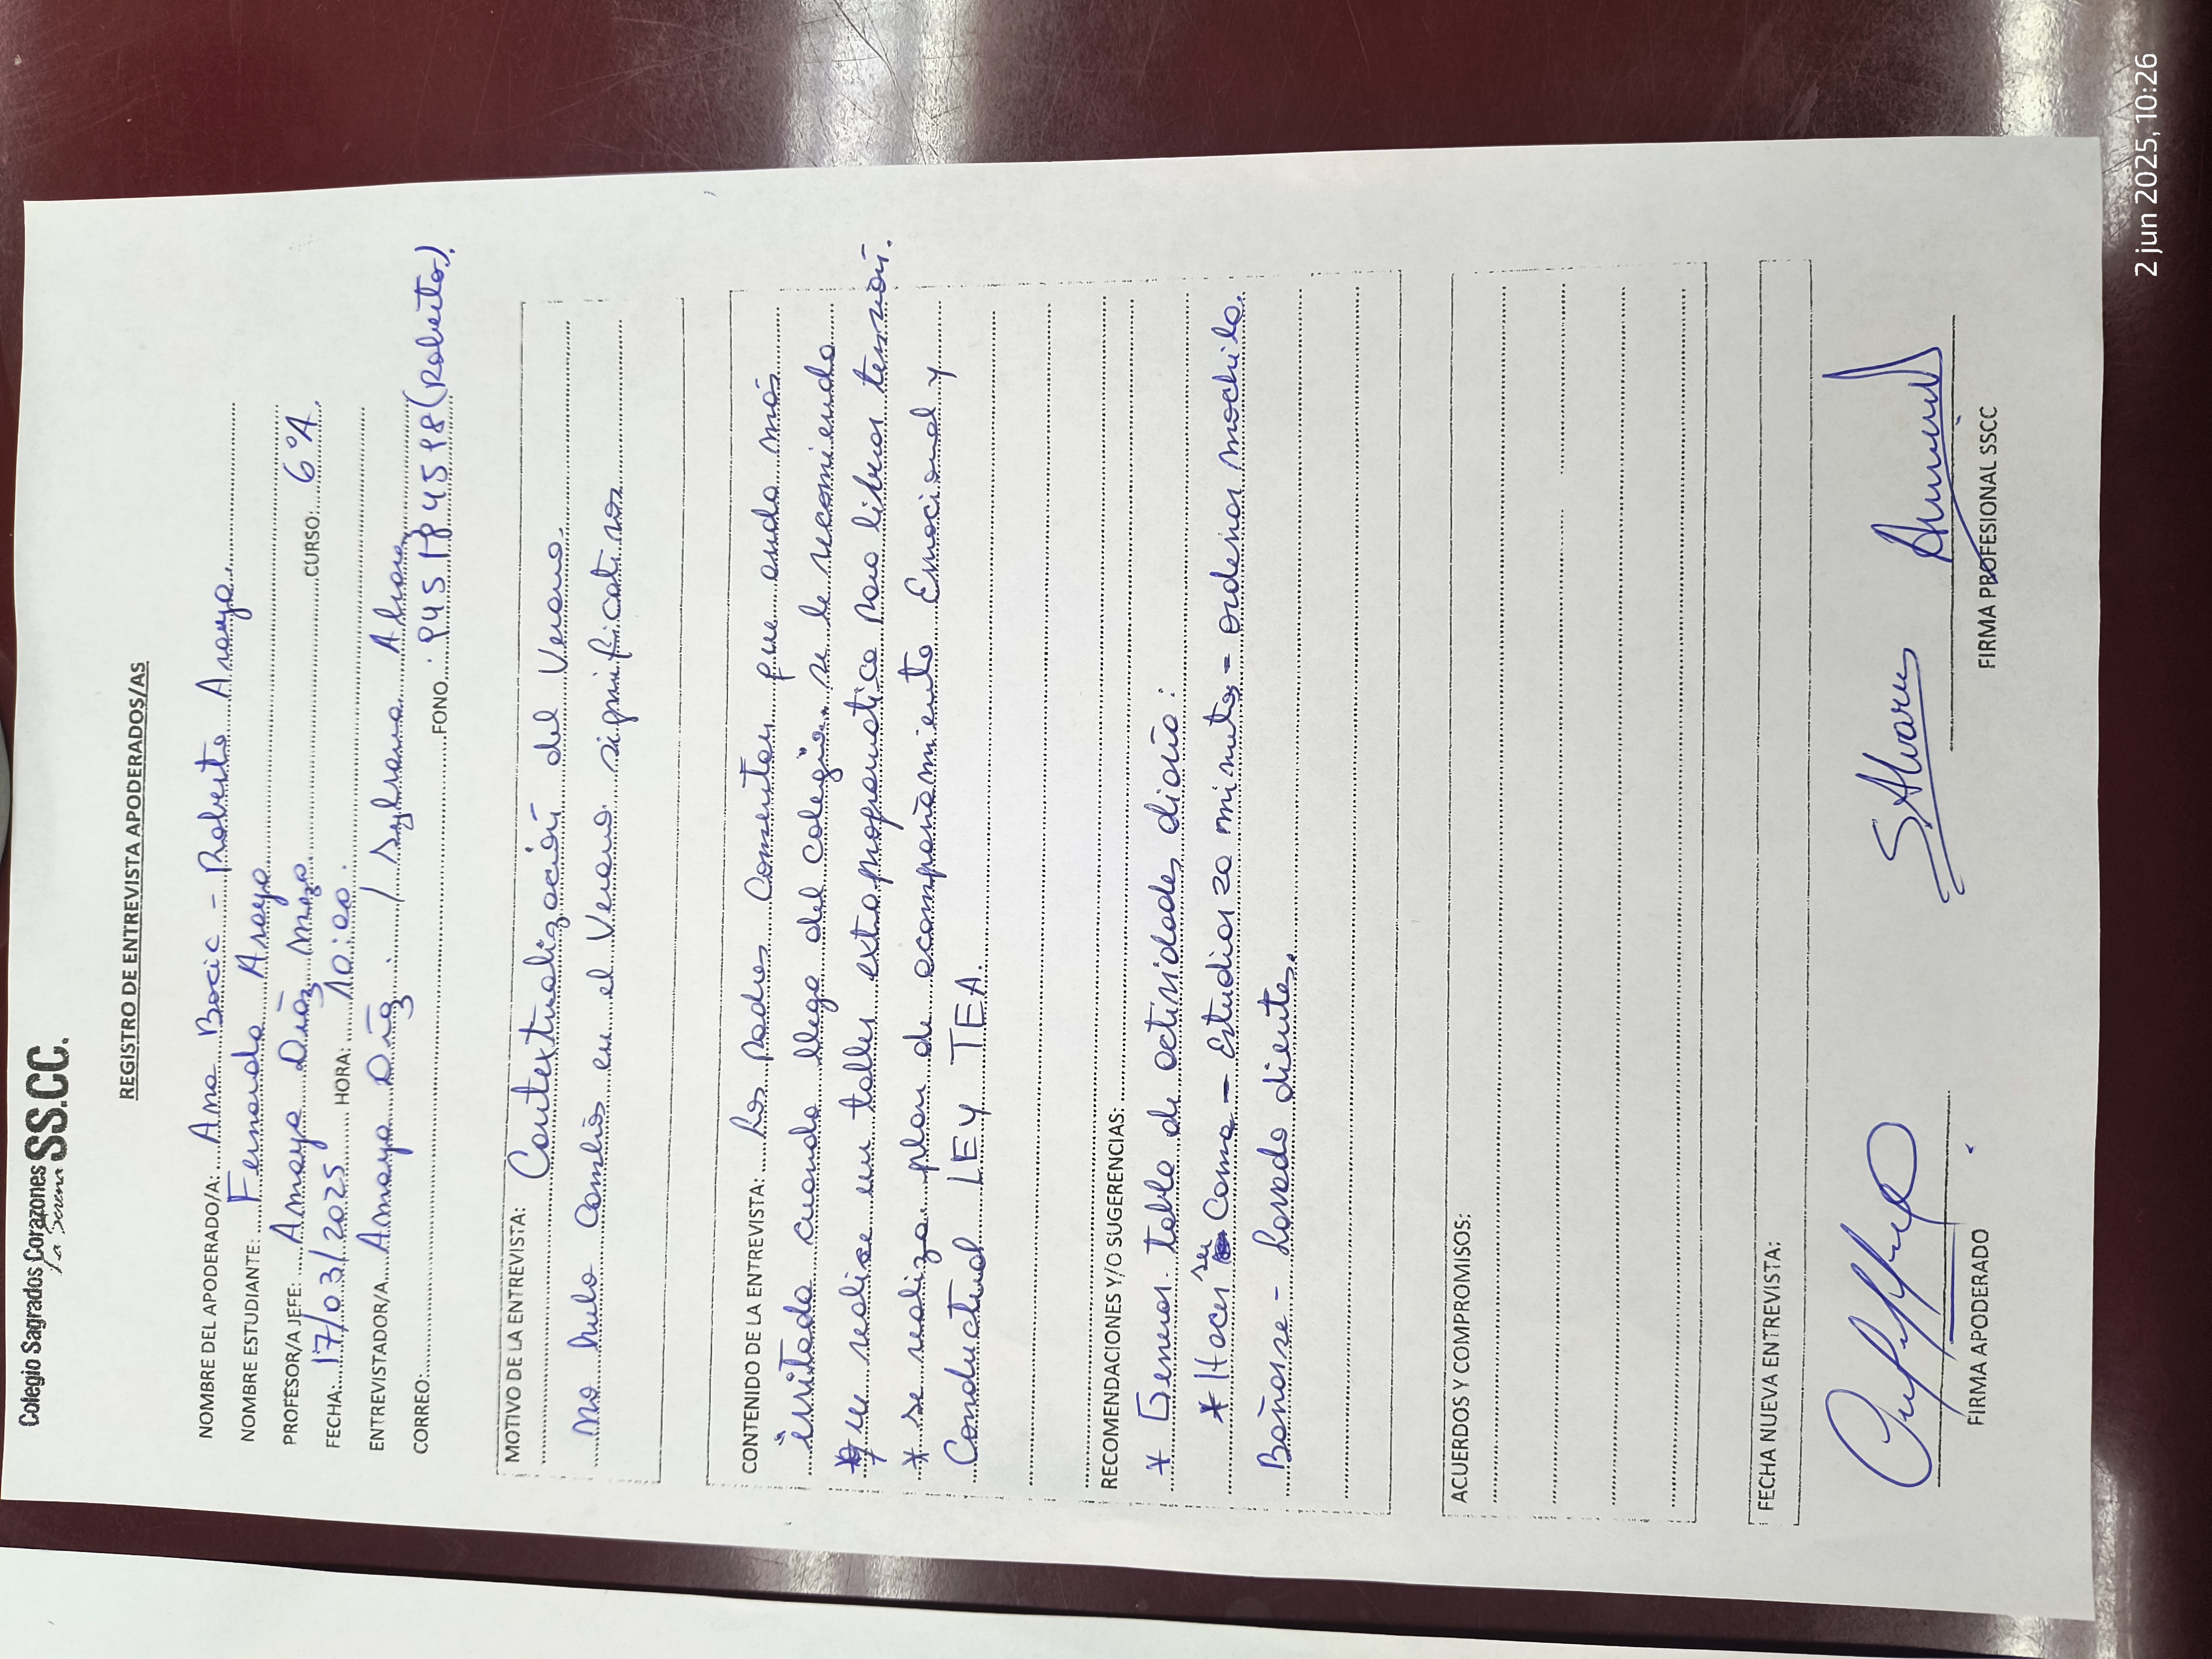 Colegio Sagrados Corazones SS.CC.
La Serena
REGISTRO DE ENTREVISTA APODERADOS/AS
NOMBRE DEL APODERADO/A: Ana Bocic - Roberto Araya.
NOMBRE ESTUDIANTE: Fernanda Araya
PROFESOR/A JEFE: Amaya Díaz Meza CURSO: 6°A.
FECHA: 17/03/2025 HORA: 10:00.
ENTREVISTADOR/A Amaya Díaz. / Sylvana
CORREO: FONO: (Roberto).
MOTIVO DE LA ENTREVISTA: Contextualización del Verano.
no hubo cambios en el Verano significativos
CONTENIDO DE LA ENTREVISTA: Los padres comentan que anda más
irritada cuando llega del colegio. se le recomienda
que realice un taller extraprogramatico para liberar tensión.
* se realiza plan de acompañamiento Emocional y
Conductual LEY TEA.
RECOMENDACIONES Y/O SUGERENCIAS:
* Generar tabla de actividades diaria:
* Hacer su Cama - Estudiar 20 minutos - ordenar mochila.
Bañarse - Lavado dientes.
ACUERDOS Y COMPROMISOS:
FECHA NUEVA ENTREVISTA:
S. Alvarez
FIRMA APODERADO FIRMA PROFESIONAL SSCC
2 jun 2025, 10:26